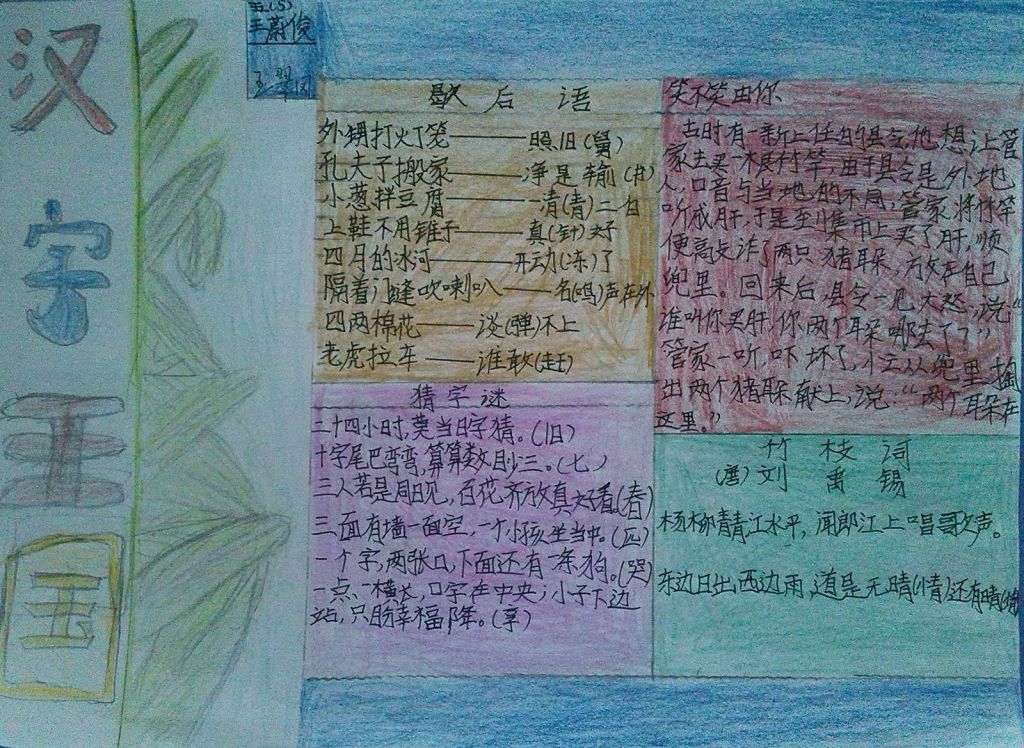 汉字王国
五(5)
王蔚俊
歇后语
外甥打灯笼——照旧(舅)
孔夫子搬家——净是输(书)
小葱拌豆腐——一清(青)二白
上鞋不用锥子——真(针)好
四月的冰河——开动(冻)了
隔着门缝吹喇叭——名(鸣)声在外
四两棉花——谈(弹)不上
老虎拉车——谁敢(赶)
猜字谜
二十四小时,莫当日字猜。(旧)
十字尾巴弯弯,算算数目少三。(七)
三人若是同日见,百花齐放真好看。(春)
三面有墙一面空,一个小孩坐当中。(四)
一个字,两张口,下面还有一条狗。(哭)
一点、一横长,口字在中央,小子下边
站,只盼幸福降。(享)
笑不笑由你
古时有一新上任的县令,他想让管
家去买一根竹竿,由于县令是外地
人,口音与当地的不同,管家将竹竿
听成肝,于是到集市上买了肝,顺
便高点诈了两只猪耳朵,放在自己
兜里。回来后,县令一见大怒,说“
谁叫你买肝,你两个耳朵哪去了?”
管家一听,吓坏了,忙从兜里掏
出两个猪耳朵献上,说:“两个耳朵在
这里。”
竹枝词
(唐)刘禹锡
杨柳青青江水平,闻郎江上唱歌声。
东边日出西边雨,道是无晴(情)还有晴(情